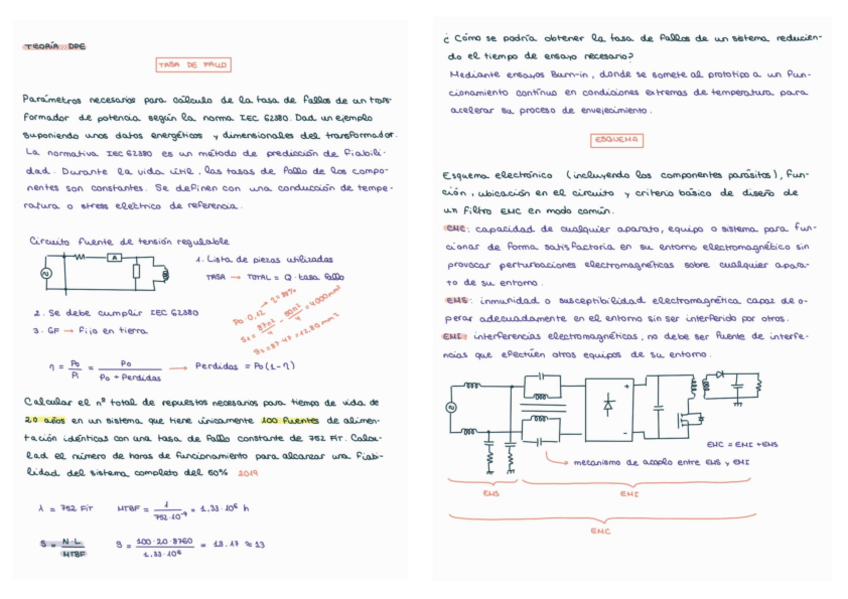 TEORÍA DPE
TASA DE FALLO
Parámetros necesarios para cálculo de la tasa de fallos de un trans-
formador de potencia según la norma IEC 62380. Dad un ejemplo
suponiendo unos datos energéticos y dimensionales del transformador.
La normativa IEC 62380 es un método de predicción de fiabili-
dad. Durante la vida útil, las tasas de fallo de los compo-
nentes son constantes. Se definen con una conducción de tempe-
ratura o stress eléctrico de referencia.
Circuito fuente de tensión regulable
A
1. Lista de piezas utilizadas
TASA → TOTAL = Q · tasa fallo
2. Se debe cumplir IEC 62380
3. GF → Fijo en tierra
η = Po/Pi = Po/(Po + Perdidas) → Perdidas = Po(1-η)
Calcular el nº total de repuestos necesarios para tiempo de vida de
20 años en un sistema que tiene únicamente 100 fuentes de alimen-
tación idénticas con una tasa de fallo constante de 752 FIT. Calcu-
lad el número de horas de funcionamiento para alcanzar una fiabi-
lidad del sistema completo del 50% 2019
λ = 752 FIT MTBF = 1/(752·10⁻⁹) = 1.33·10⁶ h
S = N·L/MTBF S = 100·20·8760/1.33·10⁶ = 13.17 ≈ 13
¿ Cómo se podría obtener la tasa de fallos de un sistema reducien-
do el tiempo de ensayo necesario?
Mediante ensayos Burn-in, donde se somete al prototipo a un fun-
cionamiento continuo en condiciones extremas de temperatura para
acelerar su proceso de envejecimiento.
ESQUEMA
Esquema electrónico (incluyendo los componentes parásitos), fun-
ción, ubicación en el circuito y criterio básico de diseño de
un filtro EMC en modo común.
EMC: capacidad de cualquier aparato, equipo o sistema para fun-
cionar de forma satisfactoria en su entorno electromagnético sin
provocar perturbaciones electromagnéticas sobre cualquier apara-
to de su entorno.
EMS: inmunidad o susceptibilidad electromagnética capaz de o-
perar adecuadamente en el entorno sin ser interferido por otros.
EMI: interferencias electromagnéticas, no debe ser fuente de interfe-
ncias que efectúen otros equipos de su entorno.
+
-
EMC = EMI + EMS
mecanismo de acoplo entre EMS y EMI
EMS EMI
EMC